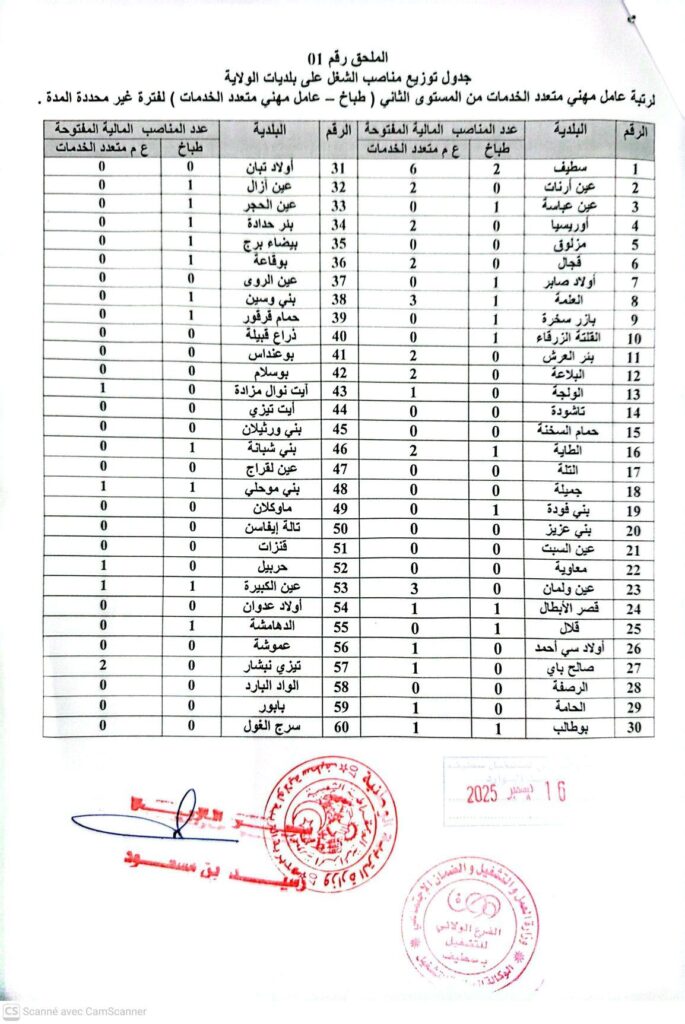 الملحق رقم 01
جدول توزيع مناصب الشغل على بلديات الولاية
لرتبة عامل مهني متعدد الخدمات من المستوى الثاني ( طباخ – عامل مهني متعدد الخدمات ) لفترة غير محددة المدة .
الرقم البلدية عدد المناصب المالية المفتوحة الرقم البلدية عدد المناصب المالية المفتوحة
طباخ ع م متعدد الخدمات طباخ ع م متعدد الخدمات
1 سطيف 2 6 31 أولاد تبان 0 0
2 عين أرنات 0 2 32 عين أزال 1 0
3 عين عباسة 1 0 33 عين الحجر 1 0
4 أوريسيا 0 2 34 بئر حدادة 1 0
5 مزلوق 0 0 35 بيضاء برج 1 0
6 قجال 0 2 36 بوقاعة 1 0
7 أولاد صابر 1 0 37 عين الروى 0 0
8 العلمة 1 3 38 بني وسين 1 0
9 بازر سخرة 1 0 39 حمام قرقور 1 0
10 القلتة الزرقاء 1 0 40 ذراع قبيلة 0 0
11 بئر العرش 0 2 41 بوعنداس 0 0
12 البلاعة 0 2 42 بوسلام 0 0
13 الولجة 0 1 43 أيت نوال مزادة 0 1
14 تاشودة 0 0 44 أيت تيزي 0 0
15 حمام السخنة 0 0 45 بني ورثيلان 0 0
16 الطاية 1 2 46 بني شبانة 1 0
17 التلة 0 0 47 عين لقراج 0 0
18 جميلة 0 0 48 بني موحلي 1 1
19 بني فودة 1 0 49 ماوكلان 0 0
20 بني عزيز 0 0 50 تالة إيفاسن 0 0
21 عين السبت 0 0 51 قنزات 0 0
22 معاوية 0 0 52 حربيل 0 1
23 عين ولمان 0 3 53 عين الكبيرة 1 1
24 قصر الأبطال 1 1 54 أولاد عدوان 0 0
25 قلال 1 0 55 الدهامشة 1 0
26 أولاد سي أحمد 0 1 56 عموشة 0 0
27 صالح باي 0 1 57 تيزي نبشار 0 2
28 الرصفة 0 0 58 الواد البارد 0 0
29 الحامة 0 1 59 بابور 0 0
30 بوطالب 1 1 60 سرج الغول 0 0
16 ديسمبر 2025
بن مسعود
وزارة العمل والتشغيل و الضمان الاجتماعي
الفرع الولائي
للتشغيل
بـسطيف
CS Scanné avec CamScanner